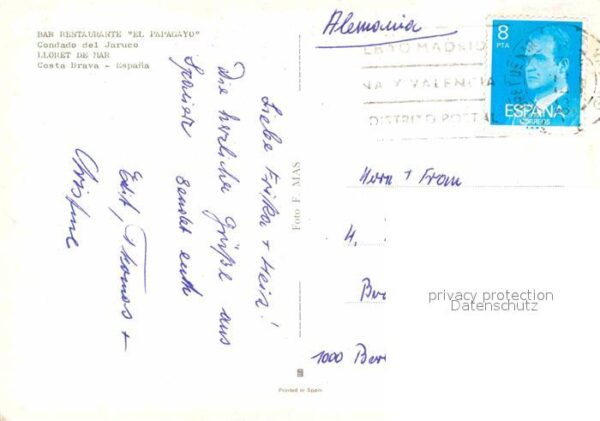 BAR RESTAURANTE "EL PAPAGAYO"
Condado del Jaruco
LLORET DE MAR
Costa Brava - España
Liebe Erika + Heia!
Die herzliche Grüße aus
Spanien sendet euch
Edit, Thomas +
Christine
Foto F. MAS
Printed in Spain
Alemania
8
PTA
ESPAÑA
CORREOS
MADRID
NA Y VALENCIA
DISTRITO POSTAL
Herrn + Frau
4.
1000 Ber
privacy protection
Datenschutz